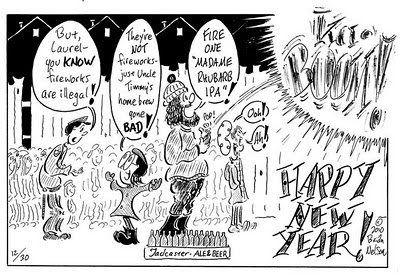 But,
Laurel-
you KNOW
fireworks
are illegal!
They're
NOT
fireworks-
just Uncle
Timmy's
home brew
gone
BAD!
FIRE
ONE
"MADAME
RHUBARB
IPA"!
POO!
Ooh!
Ah!
BOOM!
HAPPY
NEW
YEAR!
© 2010
Brian
Nelson
12/30
Tadcaster - ALE & BEER